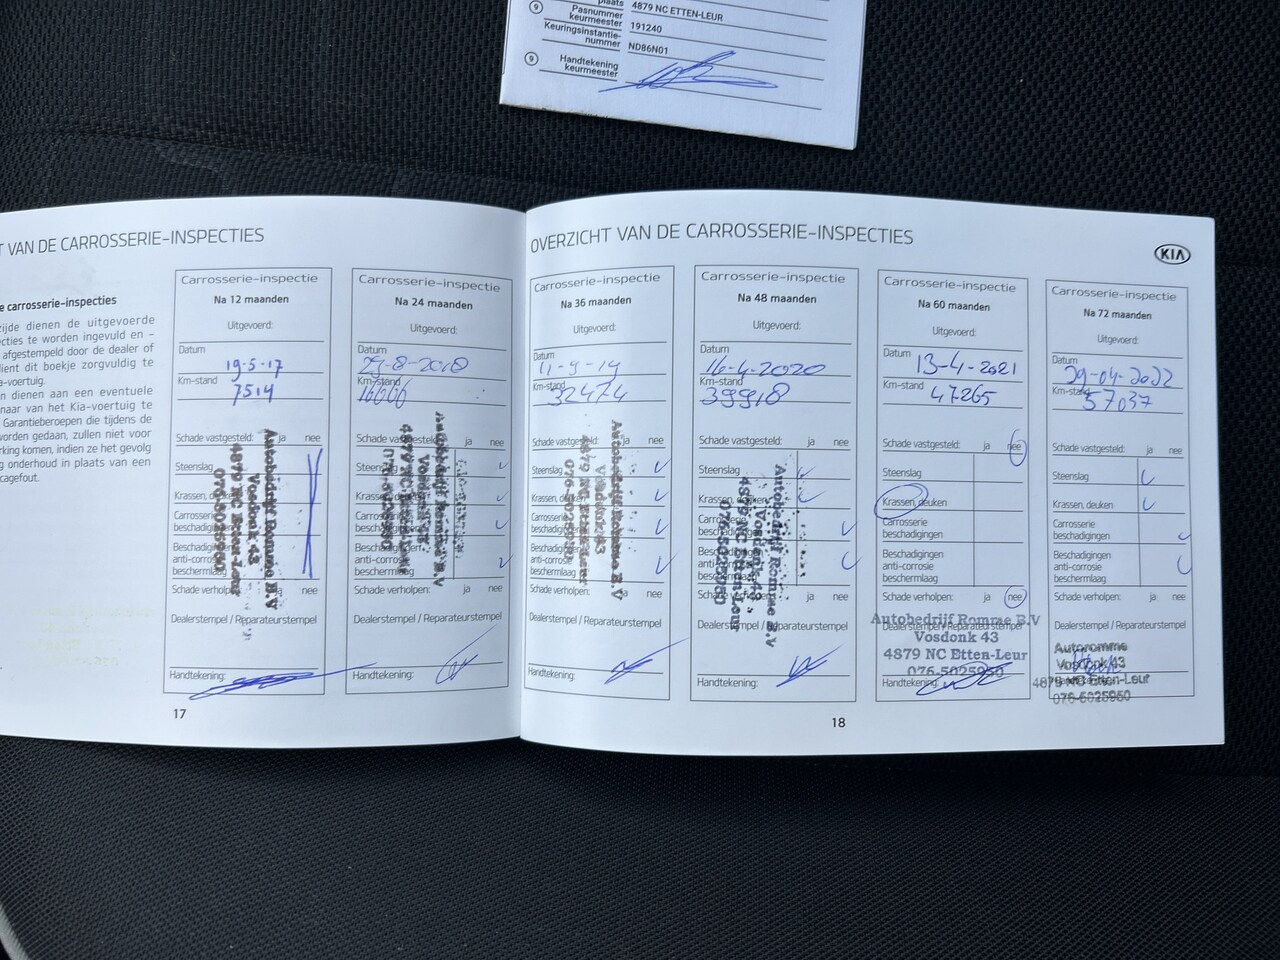 plaats 4879 NC ETTEN-LEUR
9 Pasnummer keurmeester 191240
Keuringsinstantie-nummer ND86N01
9 Handtekening keurmeester
T VAN DE CARROSSERIE-INSPECTIES
e carrosserie-inspecties
zijde dienen de uitgevoerde
ecties te worden ingevuld en -
afgestempeld door de dealer of
dient dit boekje zorgvuldig te
a-voertuig.
n dienen aan een eventuele
naar van het Kia-voertuig te
Garantieberoepen die tijdens de
worden gedaan, zullen niet voor
rking komen, indien ze het gevolg
g onderhoud in plaats van een
cagefout.
Carrosserie-inspectie
Na 12 maanden
Uitgevoerd:
Datum
19-5-17
Km-stand
7514
Schade vastgesteld: ja nee
Steenslag
Krassen, deuken
Carrosserie
beschadigingen
Beschadigingen
anti-corrosie
beschermlaag
Schade verholpen: ja nee
Dealerstempel / Reparateurstempel
Autobedrijf Romme B.V
Vosdonk 43
4879 NC Etten-Leur
076-5025950
Handtekening:
17
Carrosserie-inspectie
Na 24 maanden
Uitgevoerd:
Datum
29-8-2018
Km-stand
16666
Schade vastgesteld: ja nee
Steenslag
Krassen, deuken
Carrosserie
beschadigingen
Beschadigingen
anti-corrosie
beschermlaag
Schade verholpen: ja nee
Dealerstempel / Reparateurstempel
Autobedrijf Romme B.V
Vosdonk 43
4879 NC Etten-Leur
076-5025950
Handtekening:
OVERZICHT VAN DE CARROSSERIE-INSPECTIES
KIA
Carrosserie-inspectie
Na 36 maanden
Uitgevoerd:
Datum
11-9-19
Km-stand
32474
Schade vastgesteld: ja nee
Steenslag
Krassen, deuken
Carrosserie
beschadigingen
Beschadigingen
anti-corrosie
beschermlaag
Schade verholpen: ja nee
Dealerstempel / Reparateurstempel
Autobedrijf Romme B.V
Vosdonk 43
4879 NC Etten-Leur
076-5025950
Handtekening:
Carrosserie-inspectie
Na 48 maanden
Uitgevoerd:
Datum
16-4-2020
Km-stand
39918
Schade vastgesteld: ja nee
Steenslag
Krassen, deuken
Carrosserie
beschadigingen
Beschadigingen
anti-corrosie
beschermlaag
Schade verholpen: ja nee
Dealerstempel / Reparateurstempel
Autobedrijf Romme B.V
Vosdonk 43
4879 NC Etten-Leur
076-5025950
Handtekening:
18
Carrosserie-inspectie
Na 60 maanden
Uitgevoerd:
Datum
13-4-2021
Km-stand
47265
Schade vastgesteld: ja nee
Steenslag
Krassen, deuken
Carrosserie
beschadigingen
Beschadigingen
anti-corrosie
beschermlaag
Schade verholpen: ja nee
Dealerstempel / Reparateurstempel
Autobedrijf Romme B.V
Vosdonk 43
4879 NC Etten-Leur
076-5025950
Handtekening:
Carrosserie-inspectie
Na 72 maanden
Uitgevoerd:
Datum
29-04-2022
Km-stand
57037
Schade vastgesteld: ja nee
Steenslag
Krassen, deuken
Carrosserie
beschadigingen
Beschadigingen
anti-corrosie
beschermlaag
Schade verholpen: ja nee
Dealerstempel / Reparateurstempel
Autoromme
Vosdonk 43
4879 NC Etten-Leur
076-5025950
Handtekening: